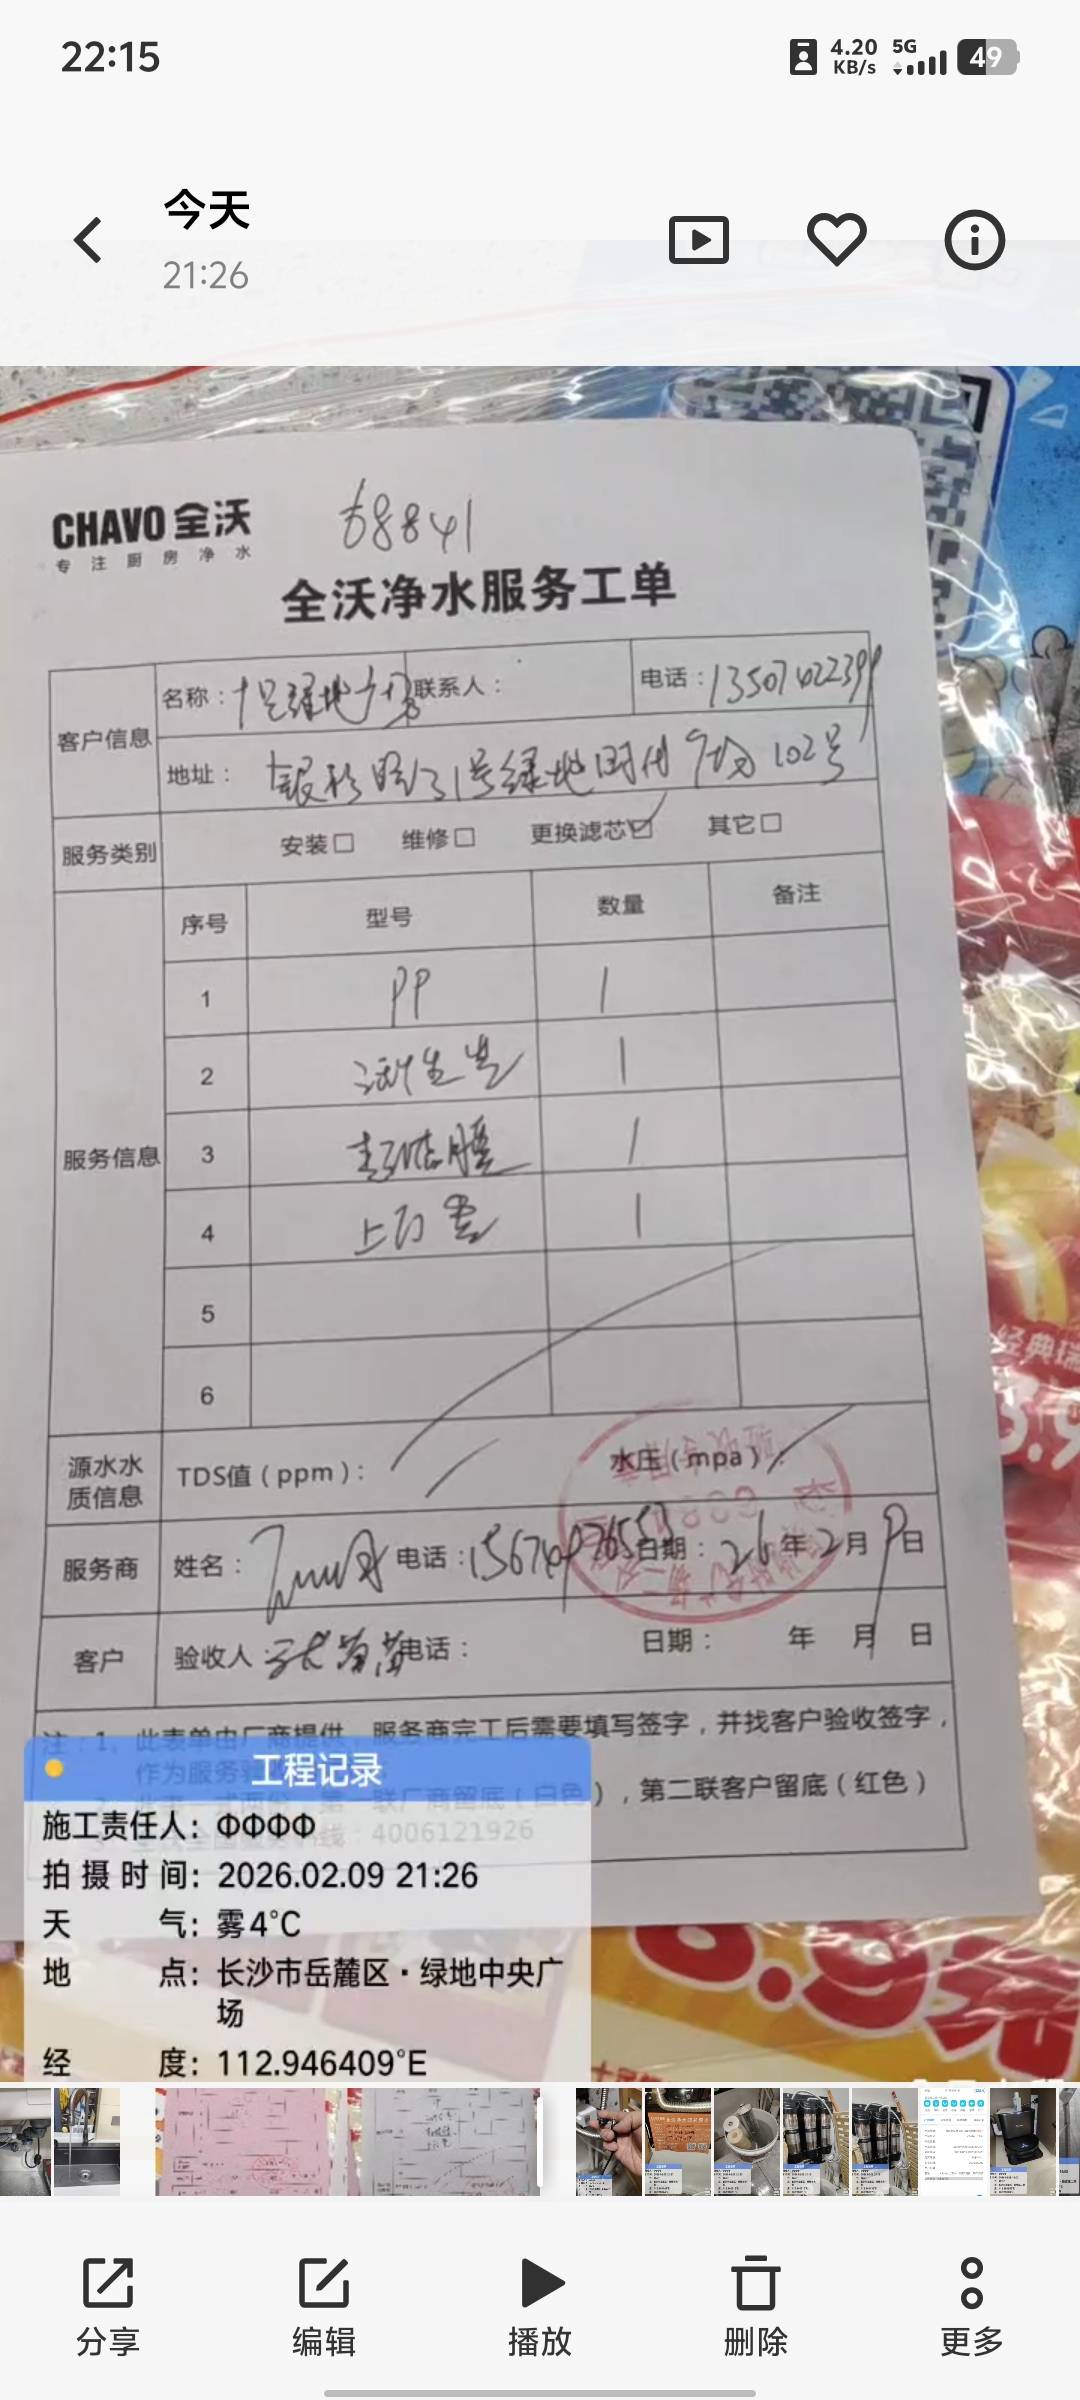 22:15
4.20 KB/s 5G 49
今天
21:26
CHAVO 全沃
专注厨房净水
68841
全沃净水服务工单
客户信息
名称：
联系人：
电话：
地址： 号绿地时代广场102号
服务类别
安装□ 维修□ 更换滤芯☑ 其它□
服务信息
序号 型号 数量 备注
1 PP 1
2 活性炭 1
3 膜 1
4 1
5
6
源水水质信息
TDS值（ppm）： 水压（mpa）：
服务商
姓名： 电话： 日期：26年2月9日
客户
验收人：张苗苗 电话： 日期： 年 月 日
注：1、此表单由厂商提供，服务商完工后需要填写签字，并找客户验收签字，
作为服务
联厂商留底（白色），第二联客户留底（红色）
线：4006121926
工程记录
施工责任人：ΦΦΦΦ
拍摄时间：2026.02.09 21:26
天气：雾4°C
地点：长沙市岳麓区·绿地中央广
场
经度：112.946409°E
经典瑞
分享
编辑
播放
删除
更多